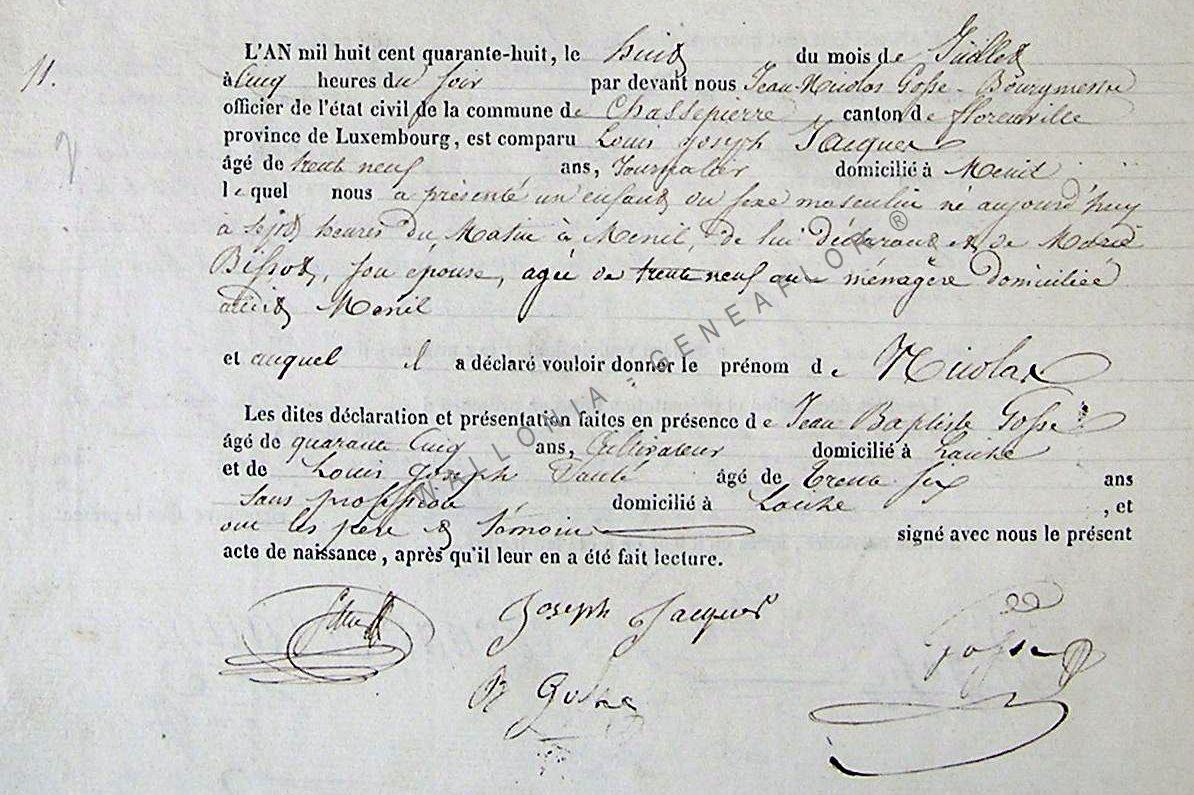 11.
L'AN mil huit cent quarante-huit, le huit du mois de Juillet
à Cinq heures du Soir par devant nous Jean Nicolas Gosse Bourgmestre
officier de l'état civil de la commune de Chassepierre canton de florenville
province de Luxembourg, est comparu Louis Joseph Jacques
âgé de trente neuf ans, Journalier domicilié à Menil
lequel nous a présenté un enfant du sexe masculin né aujourd'huy
à sept heures du Matin à Menil, de lui déclarant et de Marie
Bissot, son épouse, agée de trente neuf ans ménagère domiciliée
audit Menil
et auquel il a déclaré vouloir donner le prénom de Nicolas
Les dites déclaration et présentation faites en présence de Jean Baptiste Gosse
âgé de quarante Cinq ans, Cultivateur domicilié à Laiche
et de Louis Joseph âgé de Trente six ans
Sans profession domicilié à Laiche, et
ont les père & témoins signé avec nous le présent
acte de naissance, après qu'il leur en a été fait lecture.
Joseph Jacques
Gosse
B Gosse
WALLONIA " GENEAFLOR ®